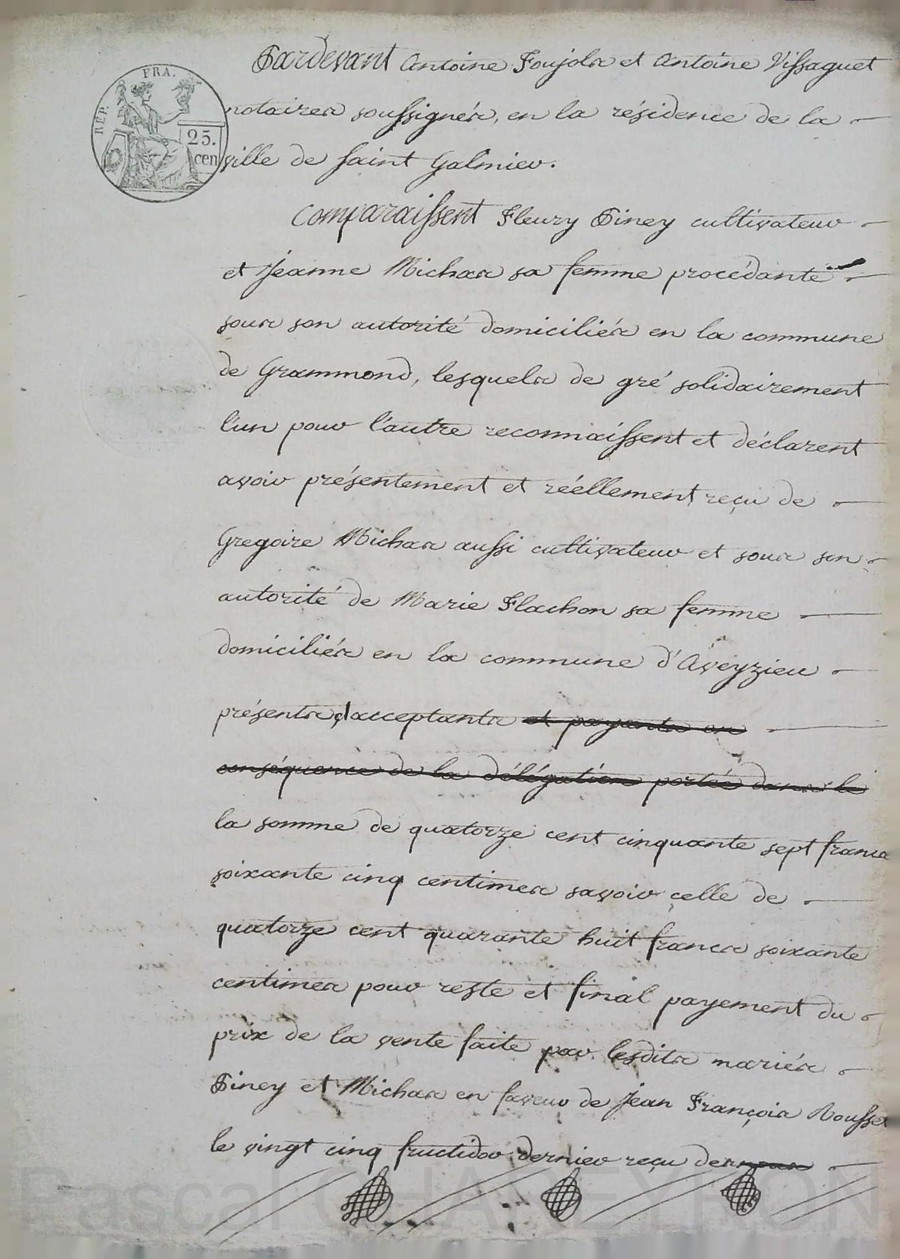 RÉP. FRA.
25.
cen
Pardevant Antoine Foujols et Antoine Vissaguet
notaires soussignés, en la résidence de la
ville de saint Galmier.
Comparaissent Fleury Piney cultivateur
et Jeanne Michas sa femme procédante
sous son autorité domiciliés en la commune
de Grammond, lesquels de gré solidairement
l'un pour l'autre reconnaissent et déclarent
avoir présentement et réellement reçu de
Gregoire Michas aussi cultivateur et sous son
autorité de Marie Flachon sa femme
domiciliés en la commune d'Aveyzieu
présents, acceptants et payants en
conséquence de la délégation portée dans le
la somme de quatorze cent cinquante sept francs
soixante cinq centimes savoir celle de
quatorze cent quarante huit francs soixante
centimes pour reste et final payement du
prix de la vente faite par lesdits mariés
Piney et Michas en faveur de Jean François Rousset
le vingt cinq fructidor dernier reçu de
Pascal CHAVEYRON